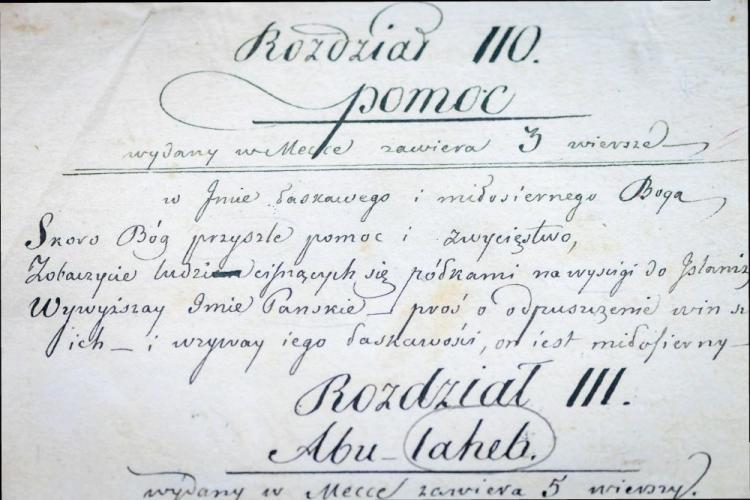 Rozdział 110.
pomoc
wydany w Mecce zawiera 3 wiersze
w Imie łaskawego i miłosiernego Boga
Skoro Bóg przyszle pomoc i zwycięstwo,
Zobaczycie ludzi cisnących się pódkami na wyscigi do
Wywyższay Imie Pańskie — proś o odpuszczenie win
ich — i wzyway iego łaskawości, on iest miłosierny —
Rozdział 111.
Abu-Laheb.
wydany w Mecce zawiera 5 wierszy.